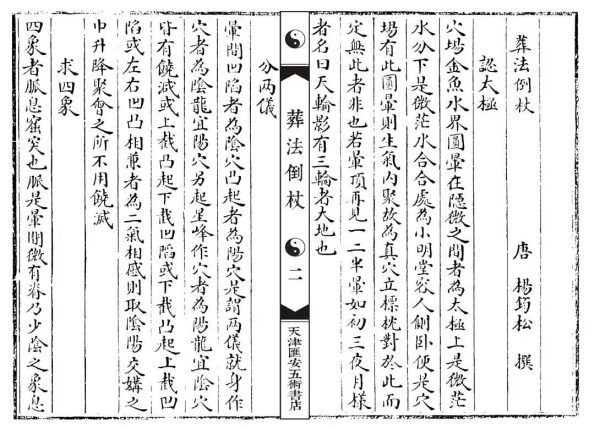 葬法倒杖
唐 楊筠松 撰
認太極
穴場金魚水界圓暈在隱微之間者為太極上是微茫
水分下是微茫水合合處為小明堂容人側卧便是穴
場有此圓暈則生氣內聚故為真穴立標枕對於此而
定無此者非也若暈頂再見一二半暈如初三夜月樣
者名曰天輪影有三輪者大地也
葬法倒杖
二
天津匯安五術書店
分兩儀
暈間凹陷者為陰穴凸起者為陽穴是謂兩儀就身作
穴者為陰龍宜陽穴另起星峰作穴者為陽龍宜陰穴
皆有饒減或上截凸起下截凹陷或下截凸起上截凹
陷或左右凹凸相兼者為二氣相感則取陰陽交媾之
中升降聚會之所不用饒減
求四象
四象者脈息窟突也脈是暈間微有脊乃少陰之象息